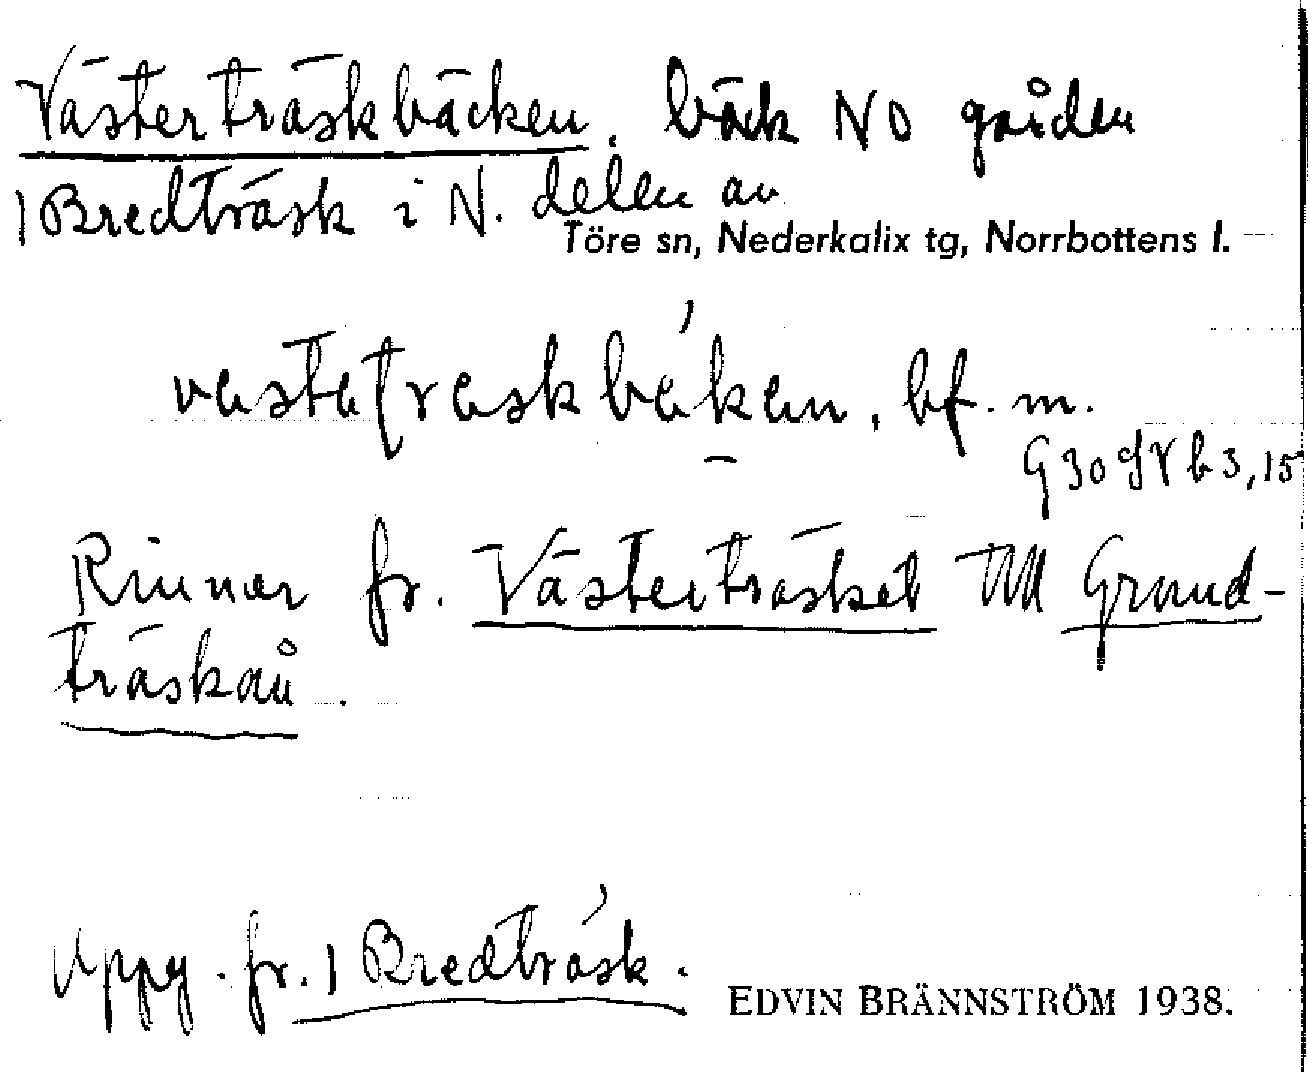 Västerträskbäcken, bäck NO gården
1 Bredträsk i N. delen av
Töre sn, Nederkalix tg, Norrbottens l.
vestetreskbekan, bf. m.
G 30 SV b 3,15
Rinner fr. Västerträsket till Grund-
träskån.
Uppg. fr. 1 Bredträsk.
EDVIN BRÄNNSTRÖM 1938.